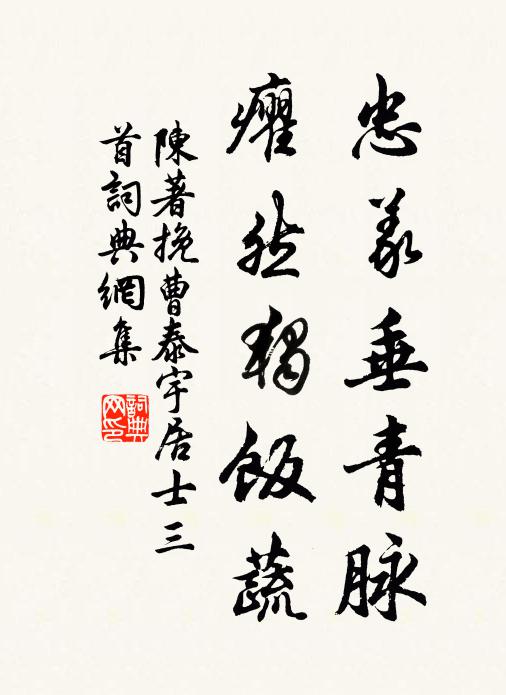 忠義垂青脉
癯然獨飯蔬
陳著挽曹泰宇居士三
首詞典網集
詞典
网印